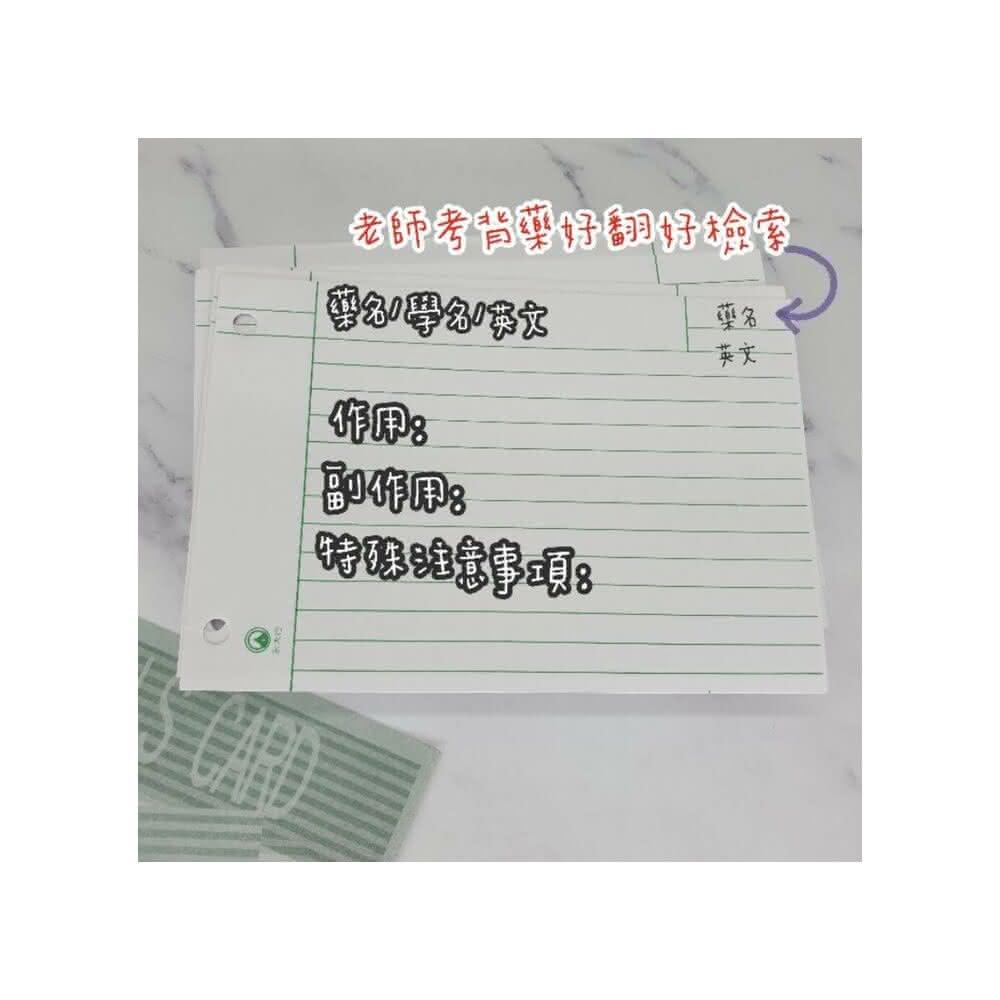 老師考背藥好翻好檢索
藥名/學名/英文
藥名
英文
作用:
副作用:
特殊注意事項:
S CARD